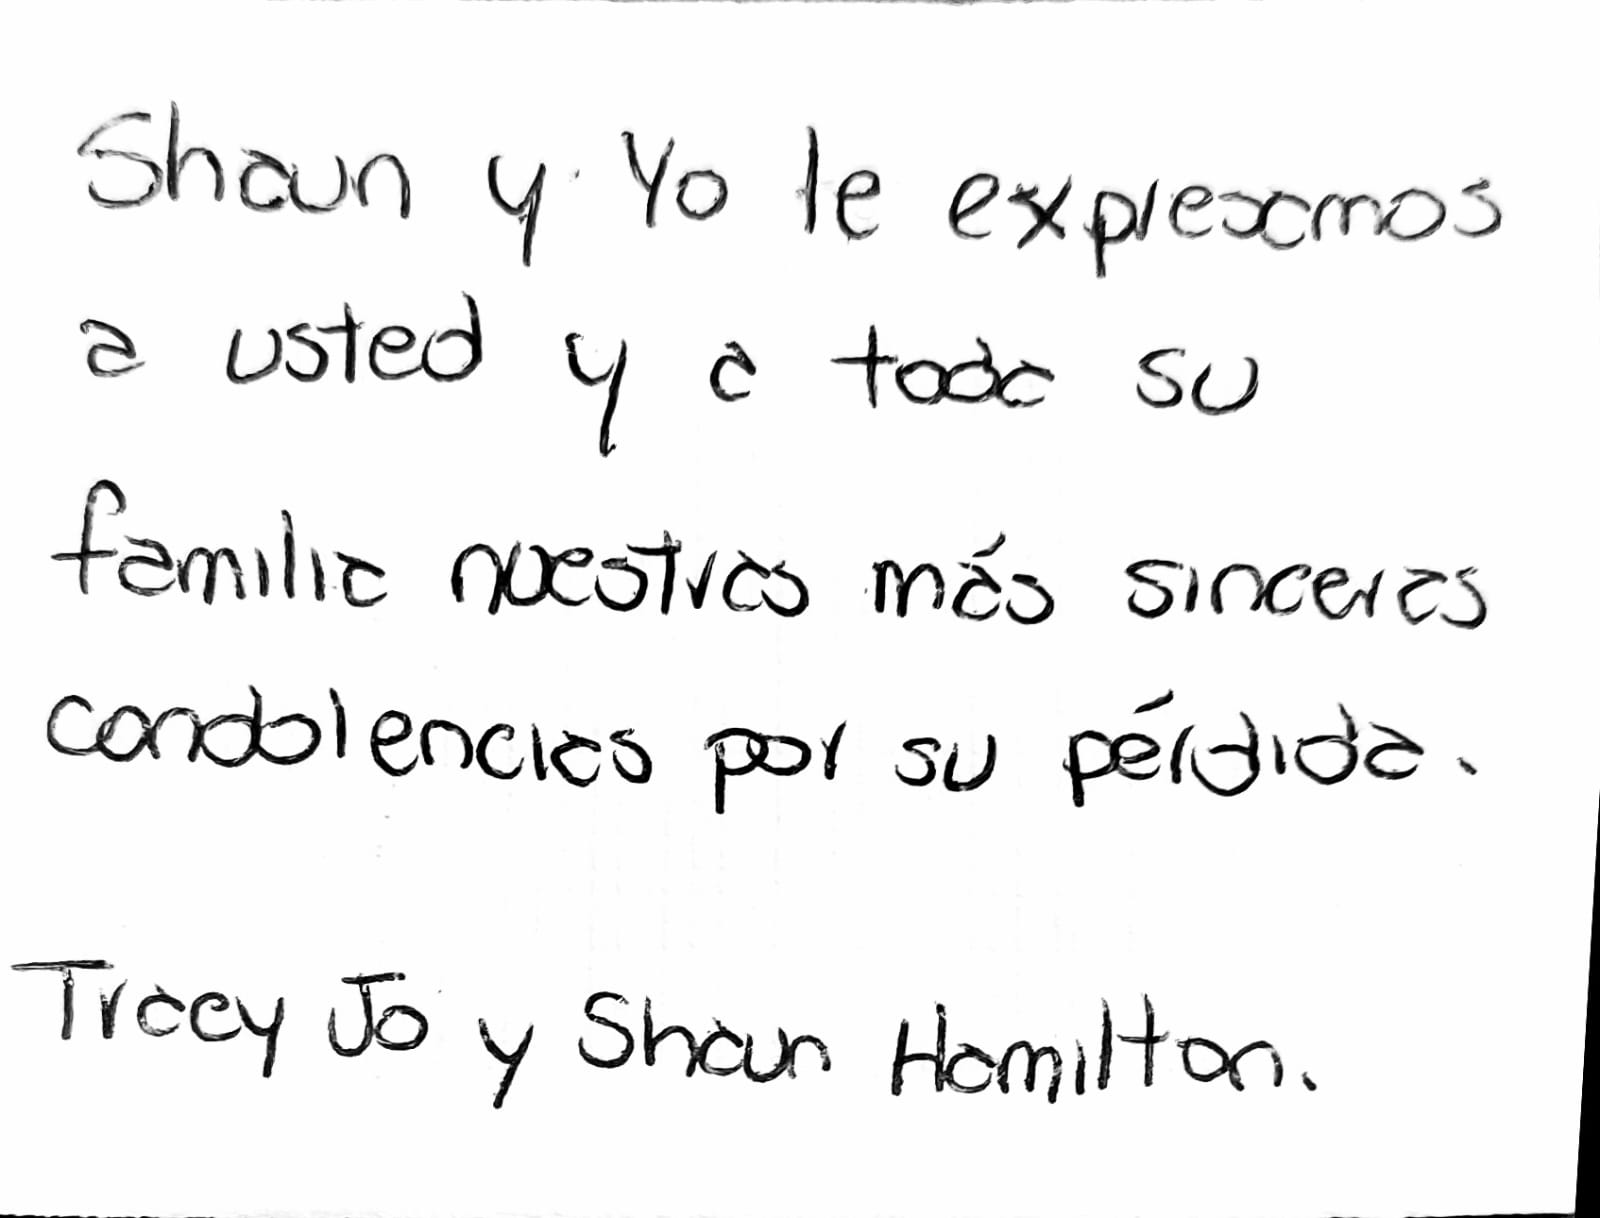 Shaun y Yo le expresamos
a usted y a toda su
familia nuestras más sinceras
condolencias por su pérdida.
Tracey Jo y Shaun Hamilton.